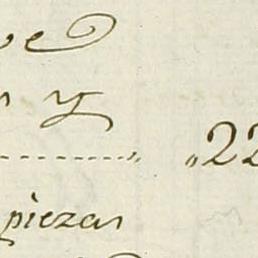 ve
y
"22
piezas